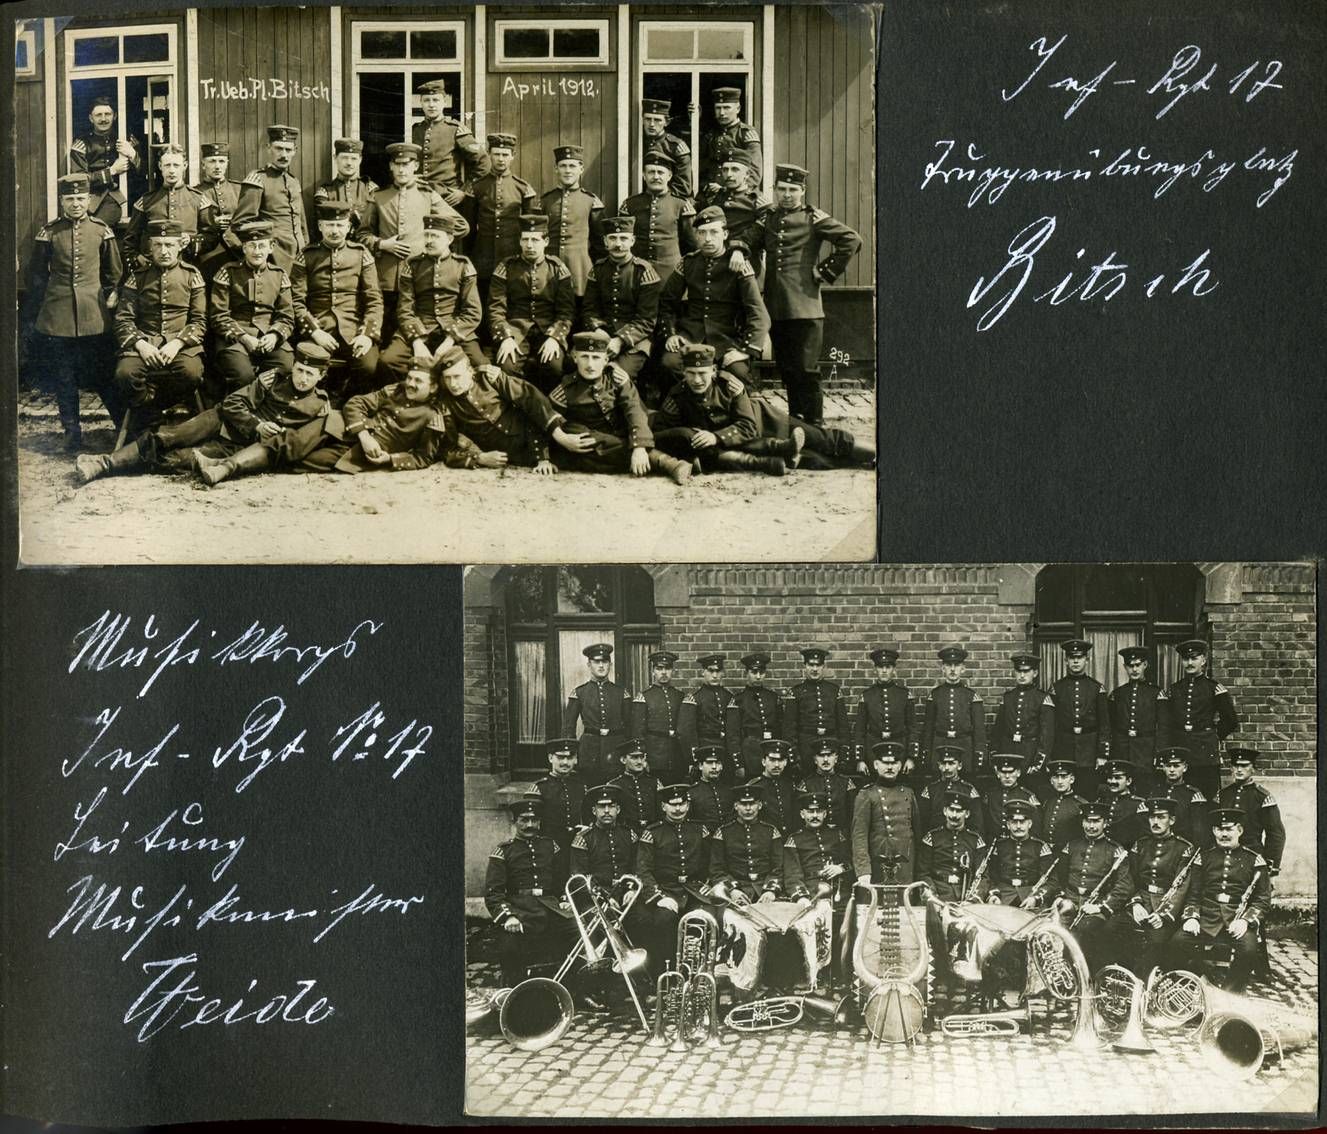 Tr. Ueb. Pl. Bitsch
April 1912.
292
A
Inf-Rgt 17
Truppenübungsplatz
Bitsch
Musikkorps
Inf-Rgt Nr 17
Leitung
Musikmeister
Weide